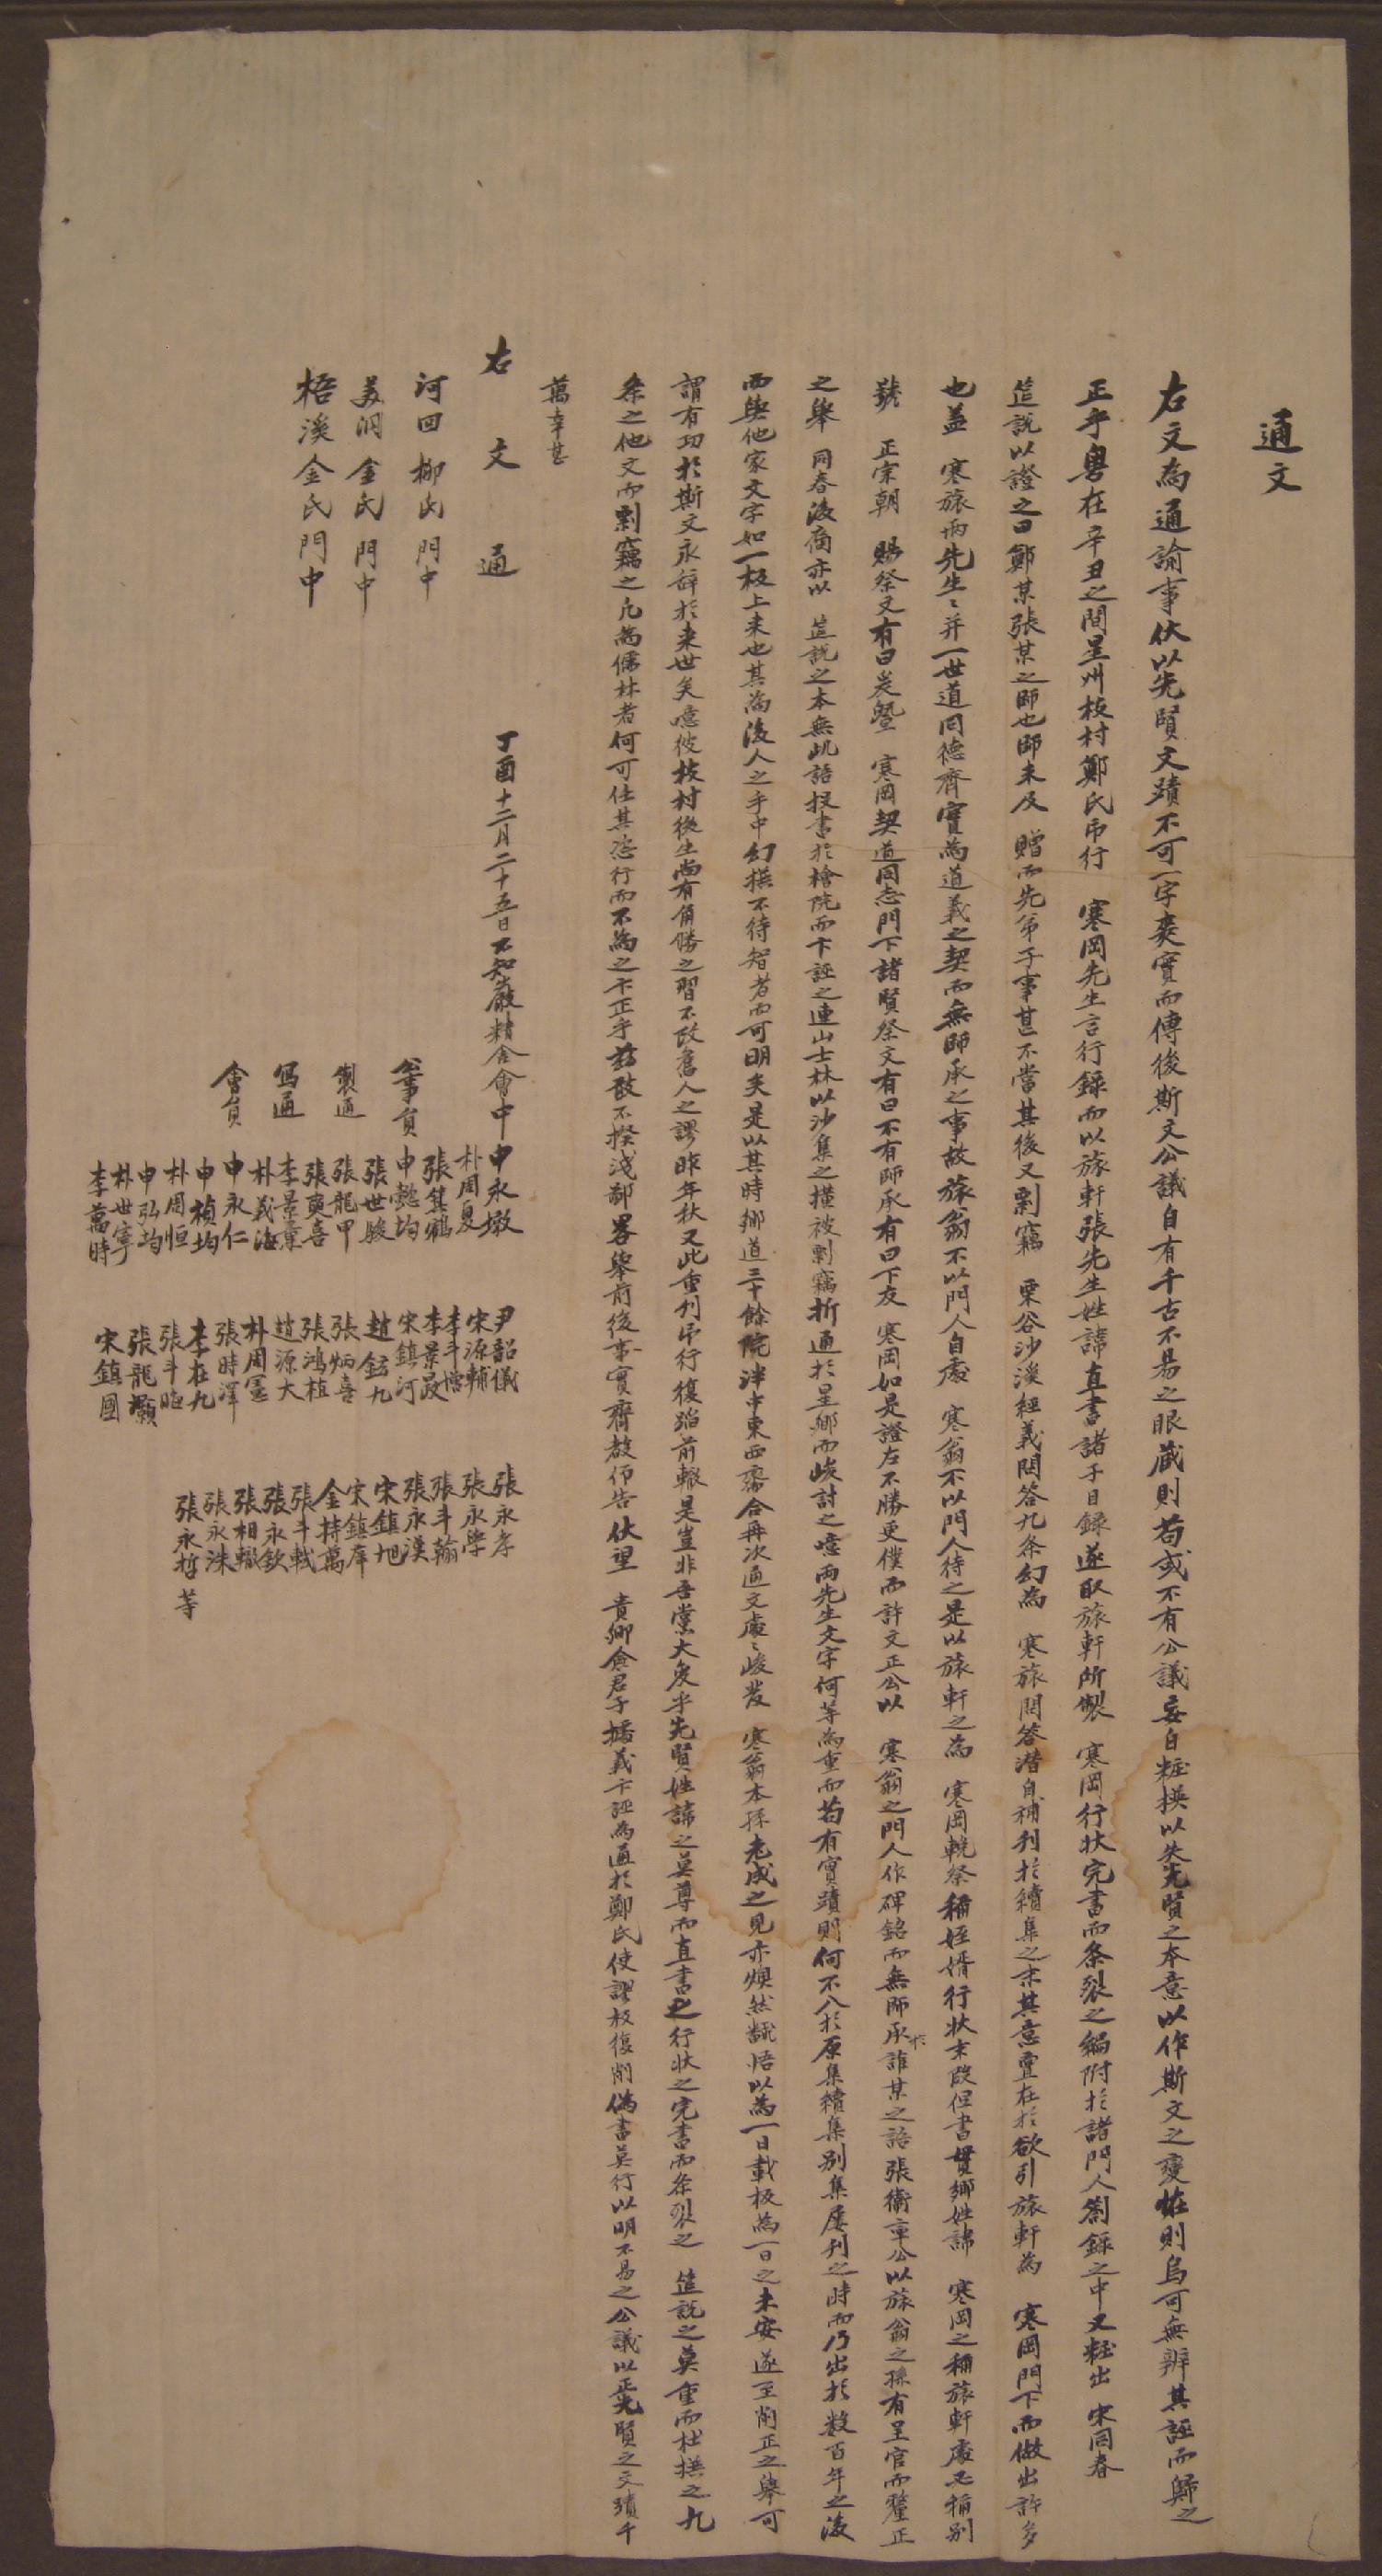 通文
右文爲通諭事伏以先賢文蹟不可一字爽實而傳後斯文公議自有千古不易之眼藏則苟或不有公議妄自粧撰以失先賢之本意以作斯文之變怪則烏可無辨其誣而歸之
正乎粤在辛丑之間星州枝村鄭氏印行 寒岡先生言行錄而以旅軒張先生姓諱直書諸子目錄遂取旅軒所製 寒岡行狀完書而条裂之編附於諸門人箚錄之中又粧出 宋同春
筵說以證之曰鄭某張某之師也師未及 贈而先弟子事甚不當其後又剽竊 栗谷沙溪經義問答九条幻爲 寒旅問答潜自補刊於續集之末其意亶在於欲引旅軒爲 寒岡門下而做出許多
也盖 寒旅兩先生〻并一世道同德齊實爲道義之契而無師承之事故旅翁不以門人自處 寒翁不以門人待之是以旅軒之爲 寒岡輓祭稱姪婿行狀末段但書貫鄕姓諱 寒岡之稱旅軒處必稱別
號 正宗朝 賜祭文有曰爰曁 寒岡契道同志門下諸賢祭文有曰不有師承有曰下友 寒岡如是證左不勝更僕而許文正公以 寒翁之門人作碑銘而無師承於誰某之語張衛率公以旅翁之孫有呈官而釐正
之擧 同春後裔亦以 筵說之本無此語投書於檜院而卞誣之連山士林以沙集之橫被剽竊折通於星鄕而峻討之噫兩先生文字何等爲重而苟有實蹟則何不入於原集續集別集屢刊之時而乃出於数百年之後
而與他家文字如一板上来也其爲後人之手中幻撰不待智者而可明矣是以其時鄕道三十餘院泮中東西齋合再次通文處〻峻发 寒翁本孫老成之見亦煥然飜悟以爲一日載板爲一日之未安遂至削正之擧可
謂有功於斯文永辞於来世矣噫彼枝村後生尚有角勝之習不改舊人之謬昨年秋又此重刊印行復蹈前轍是豈非吾黨大変乎先賢姓諱之莫尊而直書之行狀之完書而条裂之 筵說之莫重而杜撰之九
条之他文而剽竊之凡爲儒林者何可任其恣行而不爲之卞正乎玆敢不揆淺鄙畧擧前後事實齊聲佈告伏望 貴鄕僉君子據義卞誣爲通於鄭氏使謬板復削僞書莫行以明不易之公議以正先賢之文蹟千
萬幸甚
右文通
河回柳氏門中
美洞金氏門中
梧溪金氏門中
丁酉十二月二十五日不知巖精舍會中
申永墩
朴周夏
張箕
公事員
申懿均
張世駿
製通
張龍甲
張奭喜
寫通
李景
朴義海
會員
申永仁
申楨均
朴周恒
申弘均
朴世寧
李萬時
尹韶儀
宋源輔
李斗
李景晟
宋鎭河
趙鉉九
張炳喜
張鴻植
趙源大
朴周
張時澤
李在九
張斗
張龍灝
宋鎭圓
張永孝
張永學
張斗翰
張永漢
宋鎭旭
宋鎭庠
金持萬
張斗軾
張永欽
張相轍
張永洙
張永哲等